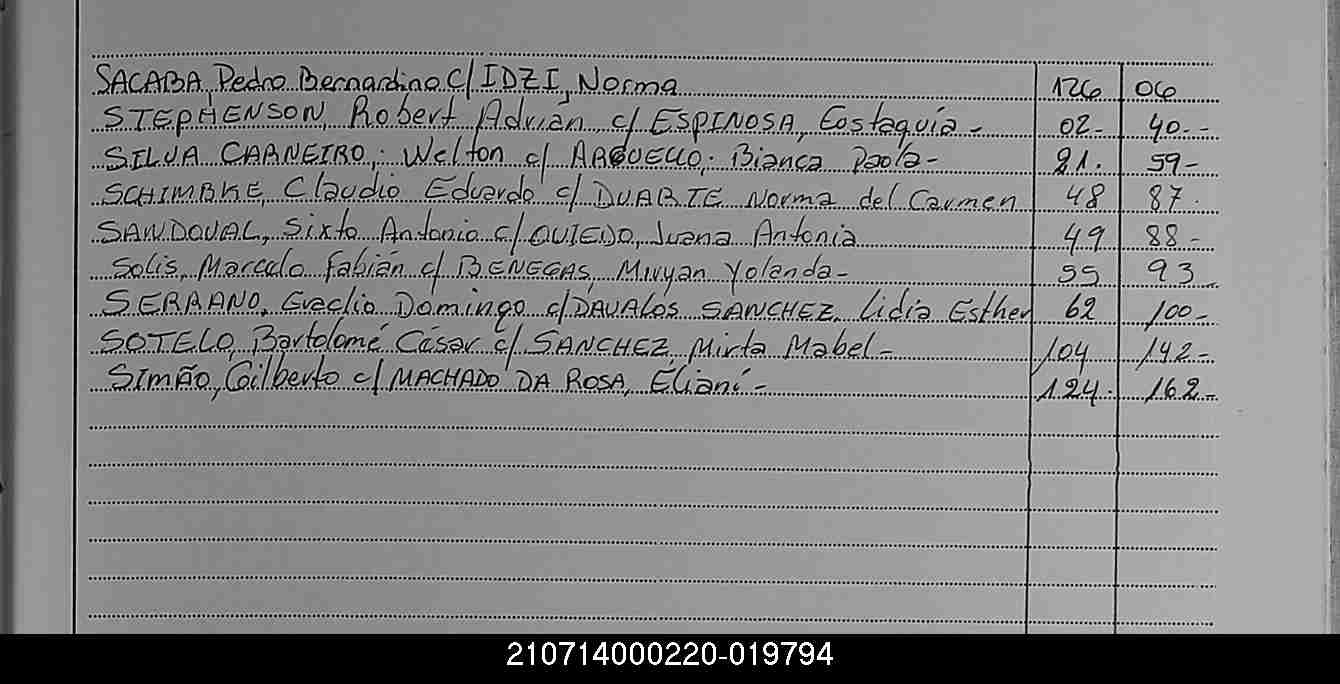 SACABA, Pedro Bernardino C/ IDZI, Norma 126 06
STEPHENSON, Robert Adrián c/ ESPINOSA, Eostaquia - 02- 40.--
SILVA CARNEIRO, Welton c/ ARGUELLO, Bianca Paola- 21. 59-
SCHIMBKE, Claudio Eduardo c/ DUARTE Norma del Carmen 48 87.
SANDOVAL, Sixto Antonio c/ OVIEDO, Juana Antonia 49 88-
Solis, Marcelo Fabián c/ BENEGAS, Miryan Yolanda- 55 93
SERRANO, Eraclio Domingo c/ DAVALOS SANCHEZ, Lidia Esther 62 100-
SOTELO, Bartolomé César c/ SANCHEZ, Mirta Mabel- 104 142-
SIMÃO, Gilberto c/ MACHADO DA ROSA, Eliani- 124. 162-
210714000220-019794